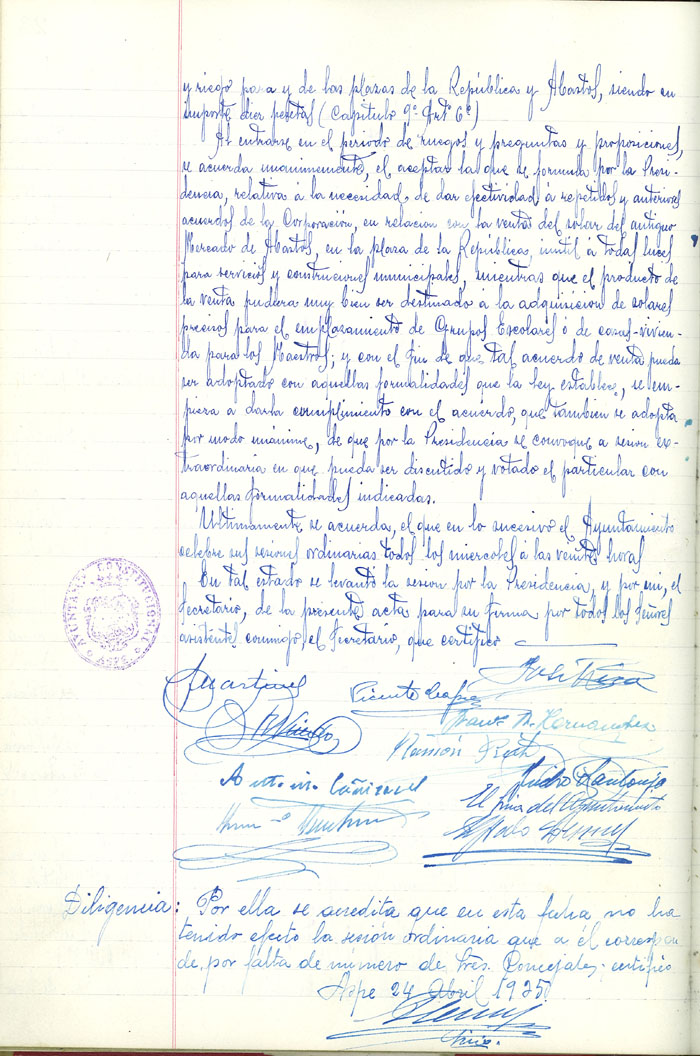 y riego para y de las plazas de la República y Abastos, siendo su
importe diez pesetas (Capitulo 9º Artº 6º)
Al entrarse en el periodo de ruegos y preguntas y proposiciones,
se acuerda unanimemente, el aceptar la que se formula por la Presi-
dencia, relativa á la necesidad, de dar efectividad á repetidos y anteriores
acuerdos de la Corporación, en relacion con la venta del solar del antiguo
Mercado de Abastos, en la plaza de la República, inutil á todas luces
para servicios y construciones municipales, mientras que el producto de
la venta pudiera muy bien ser destinado á la adquisicion de solares
precisos para el emplazamiento de Grupos Escolares ó de casas-vivien-
da para los Maestros; y con el fin de que tal acuerdo de venta pueda
ser adoptado con aquellas formalidades que la ley establece, se em-
pieza a darla cumplimiento con el acuerdo, que tambien se adopta
por modo unánime, de que por la Presidencia se convoque a sesion ex-
traordinaria en que pueda ser discutido y votado el particular con
aquellas formalidades indicadas.
Ultimamente se acuerda, el que en lo sucesivo el Ayuntamiento
celebre sus sesiones ordinarias todos los miercoles á las veinte horas
En tal estado se levantó la sesion por la Presidencia, y por mi, el
Secretario, de la presente acta para su firma por todos los Señores
asistentes conmigo, el Secretario, que certifico
AYUNTAMIENTO CONSTITUCIONAL
ASPE
Martinez Vicente Lopez José
Hernandez
Ramón
Antonio Cañizares Pedro Santonja
El del Ayuntamiento
Diligencia: Por ella se acredita que en esta fecha no ha
tenido efecto la sesión ordinaria que a él correspon
de, por falta de número de Sres. Concejales. certifico
Aspe 24 Abril 1935